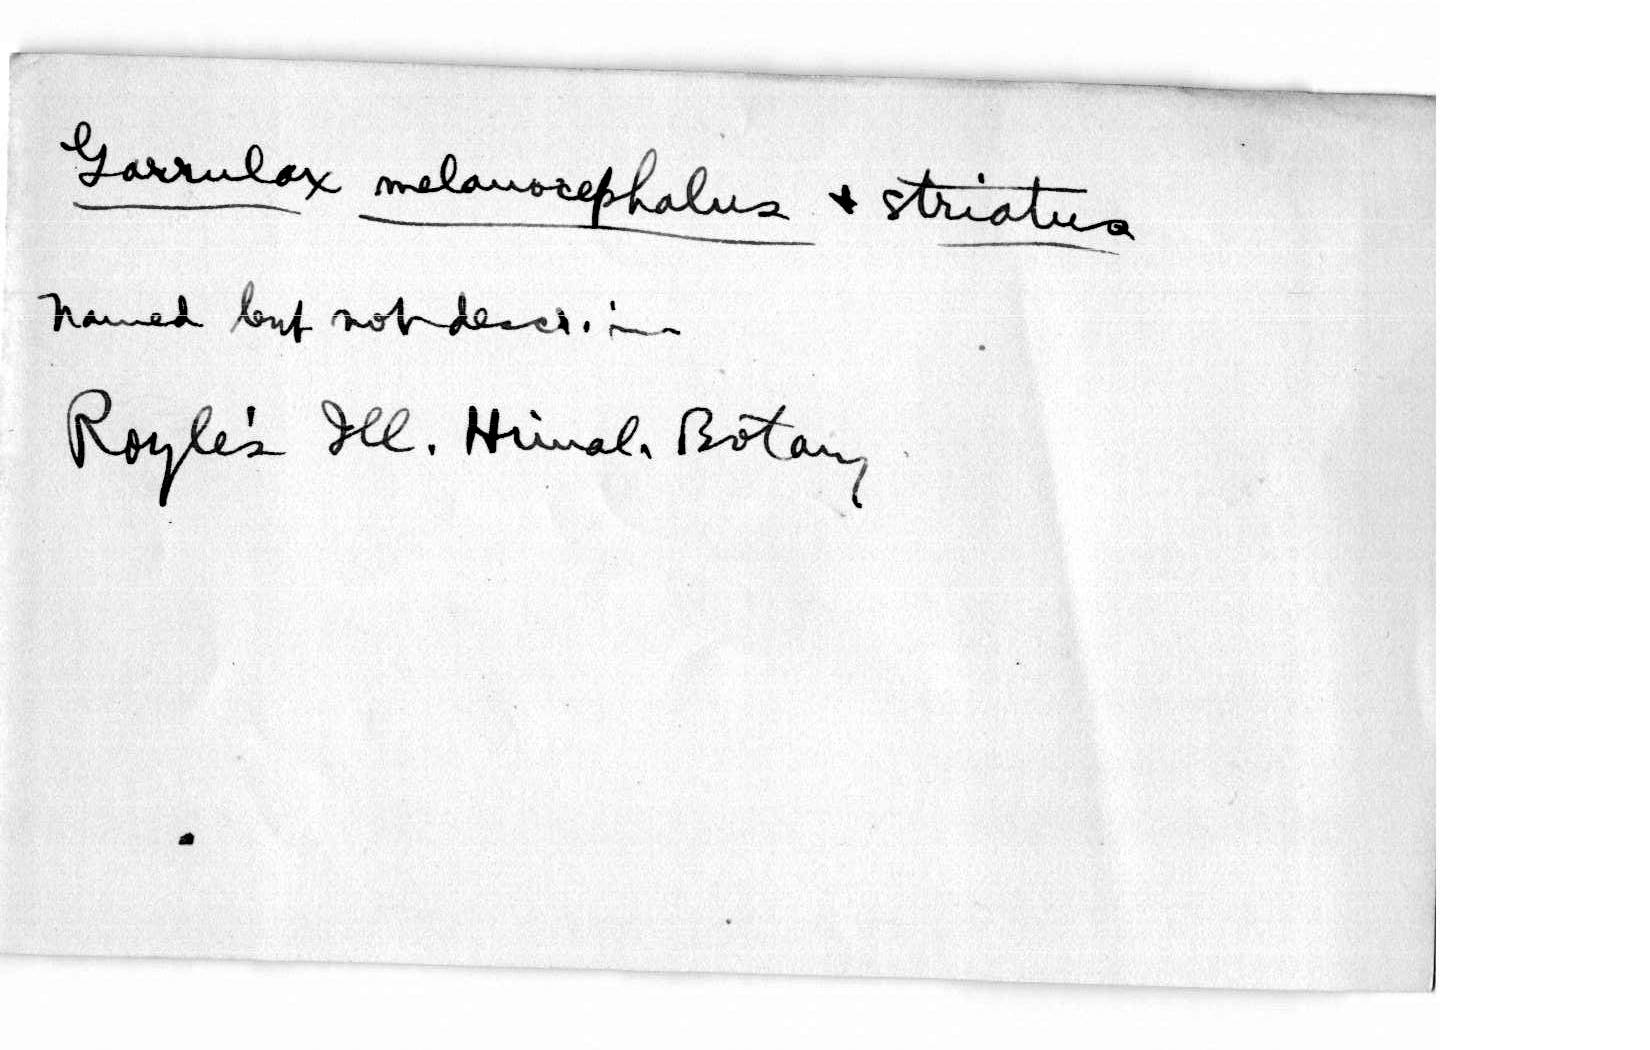 Garrulax melanocephalus & striatus
Named but not descr. in
Royle's Ill. Himal. Botany